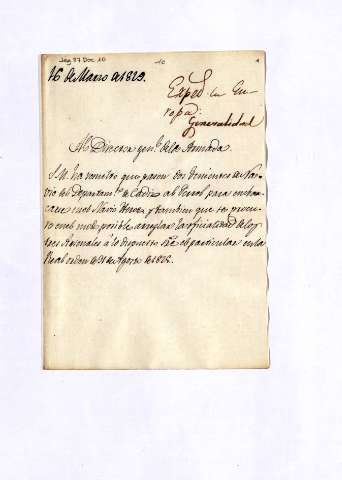 Leg. 37 Doc. 10
10
1
16 de Marzo de 1829.
Exped.s en Eu-
ropa:
Generalidad
Al Director gen.l de la Armada
S.M. ha resuelto que pasen dos Tenientes de Na-
vio del Departam.to de Cadiz al Ferrol para embar-
carse en el Navio Heroe, y tambien que se procu-
re en lo mas posible arreglar la oficialidad de los
tres Arsenales á lo dispuesto en el particular en la
Real orden de 31 de Agosto de 1828.